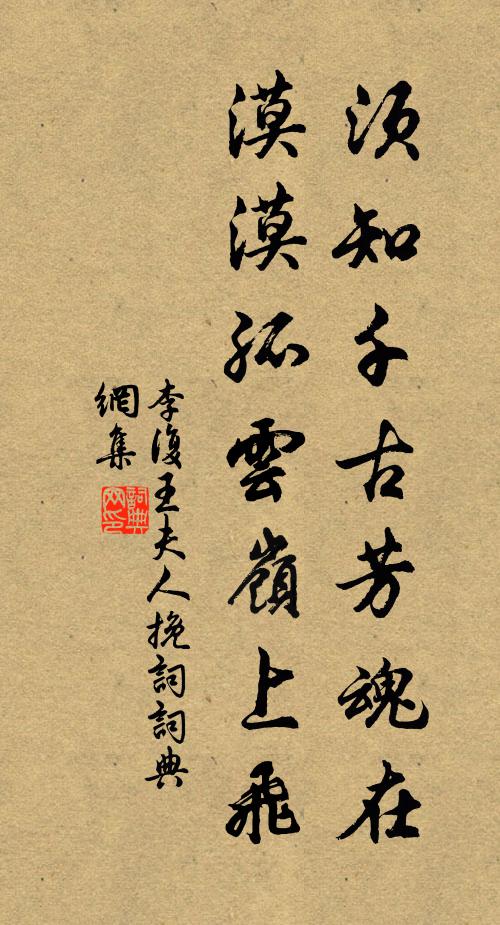 须知千古芳魂在
漠漠孤雲嶺上飛
李復王夫人挽詞詞典
網集
詞典
网印